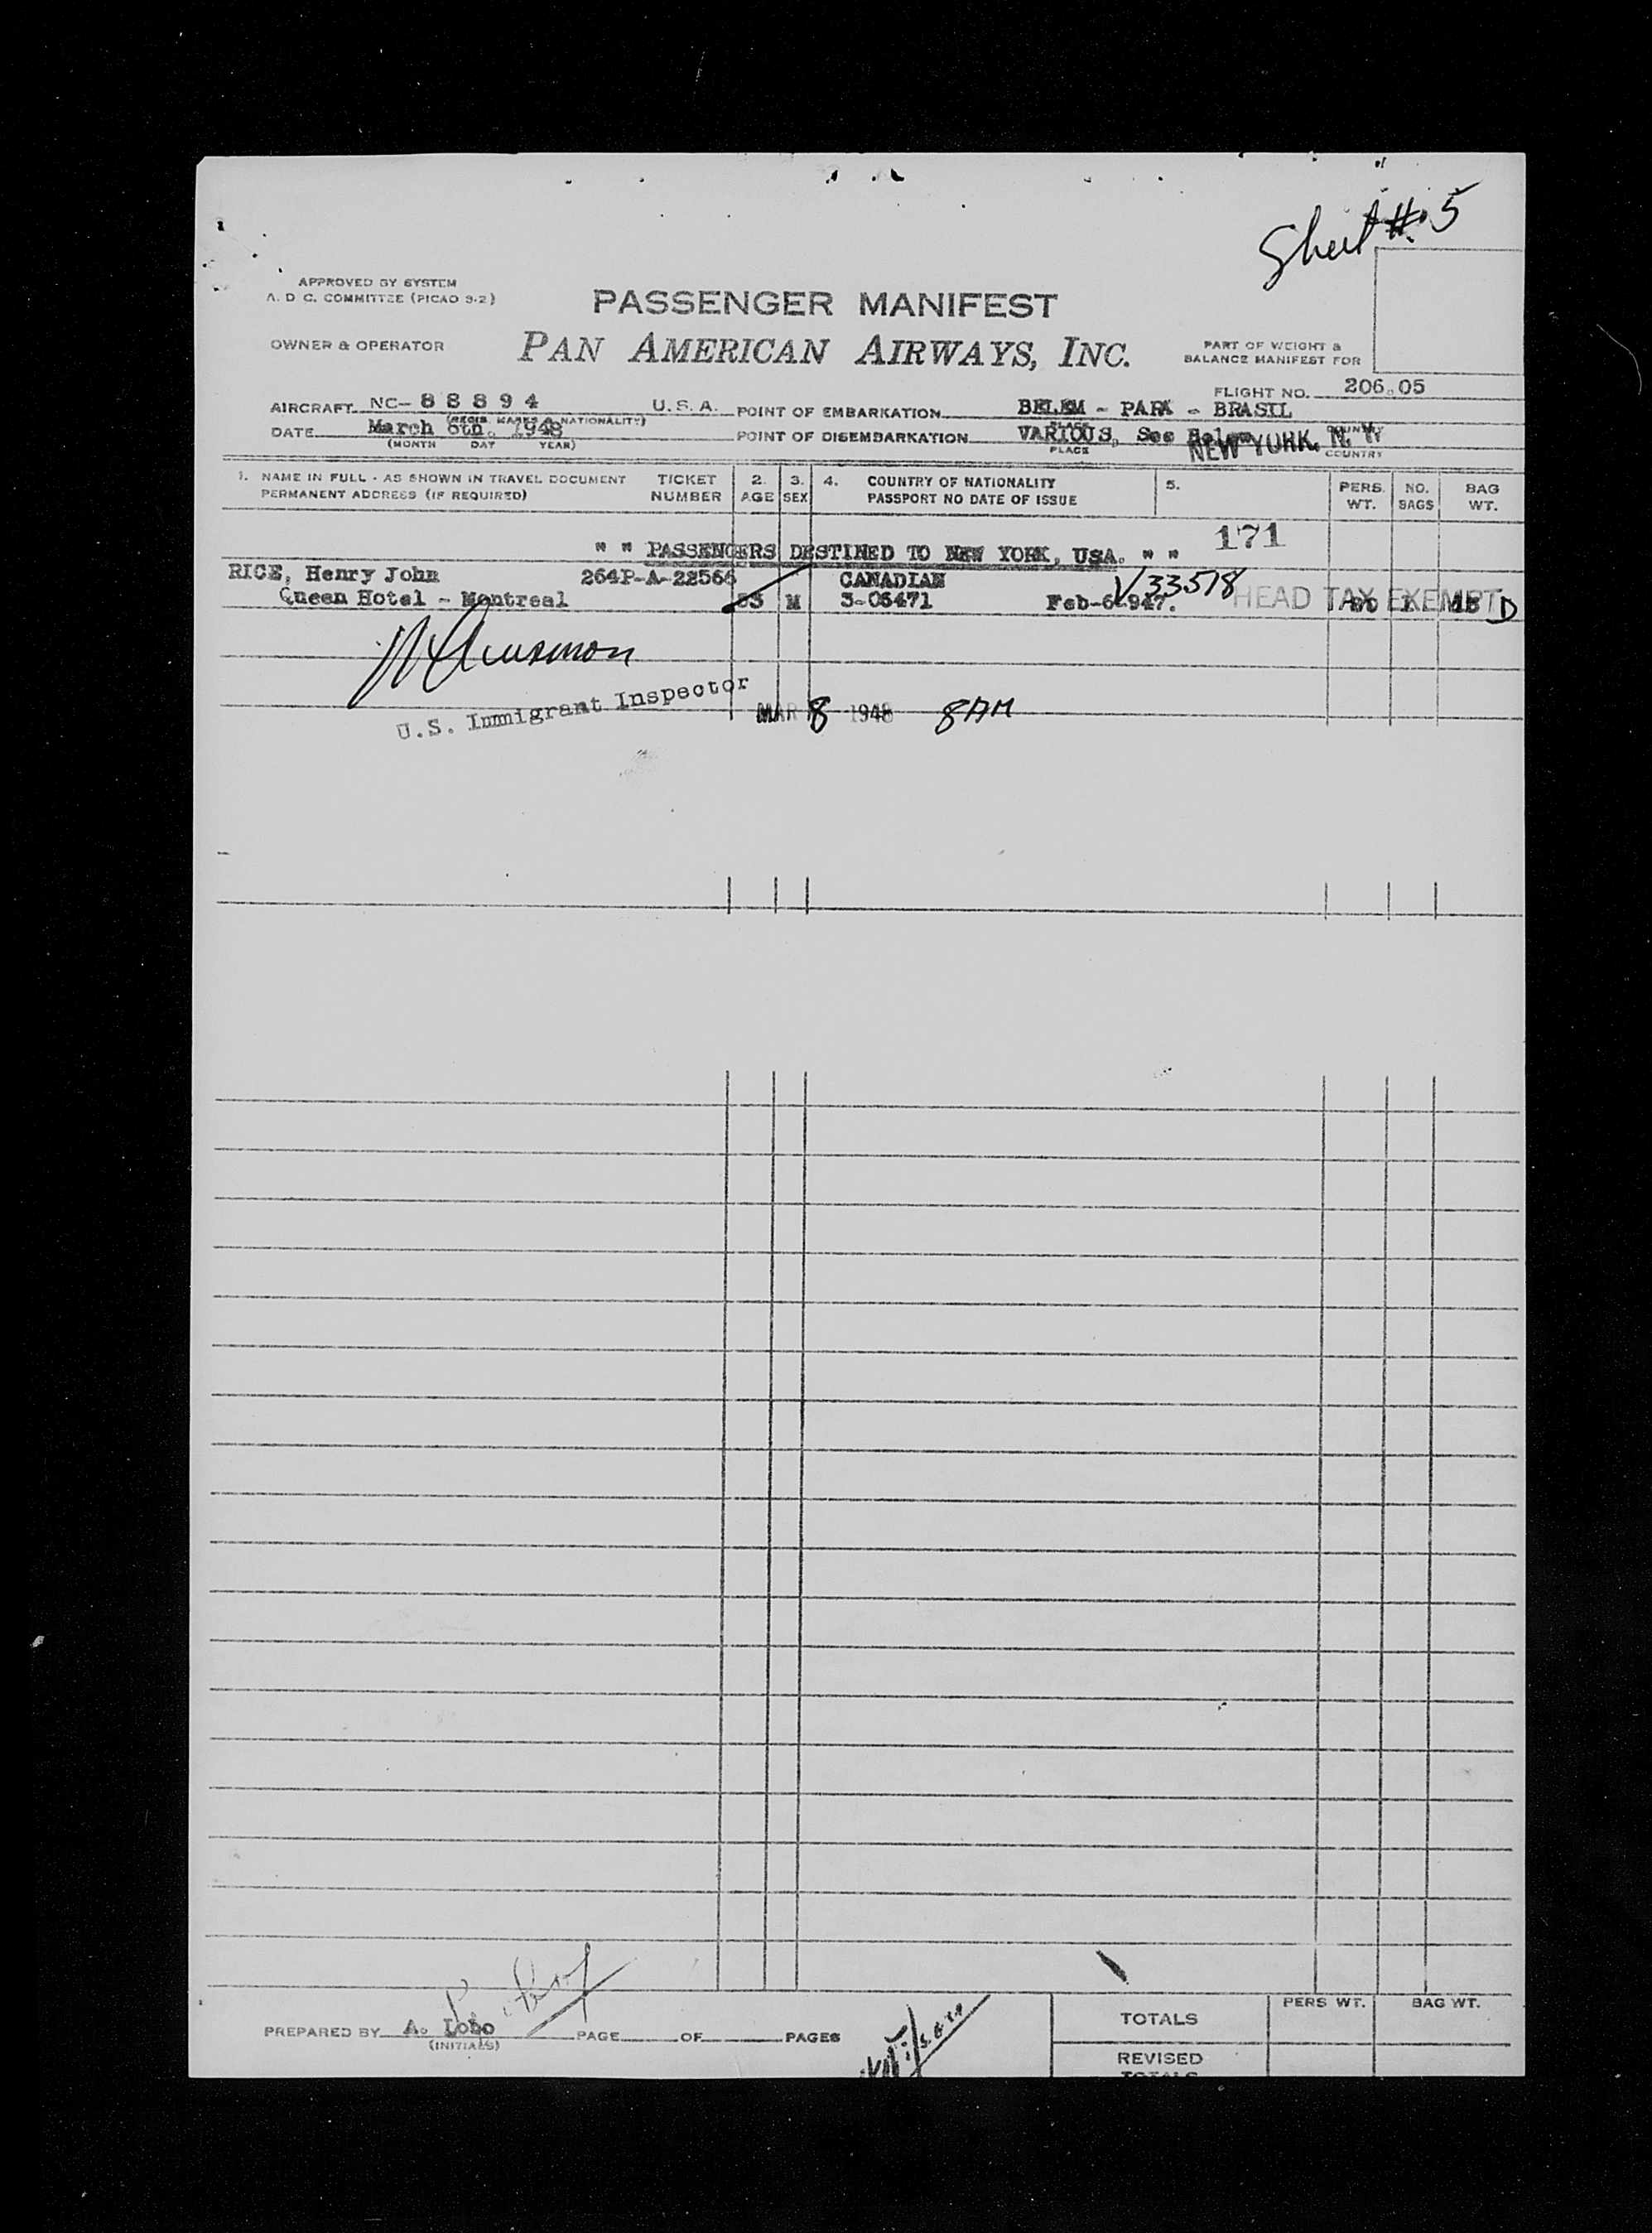 Sheet #5
APPROVED BY SYSTEM
A. D C. COMMITTEE (PICAO 9-2)
PASSENGER MANIFEST
OWNER & OPERATOR
PAN AMERICAN AIRWAYS, INC.
PART OF WEIGHT &
BALANCE MANIFEST FOR
FLIGHT NO. 206.05
AIRCRAFT NC- 8 8 8 9 4 U. S. A.
(REGIS. MARKS & NATIONALITY)
POINT OF EMBARKATION BELEM - PARA - BRASIL
PLACE COUNTRY
DATE March 6th. 1948
(MONTH DAY YEAR)
POINT OF DISEMBARKATION VARIOUS, See Below
NEW YORK, N. Y.
PLACE COUNTRY
1. NAME IN FULL - AS SHOWN IN TRAVEL DOCUMENT
PERMANENT ADDRESS (IF REQUIRED)
TICKET
NUMBER
2.
AGE
3.
SEX
4. COUNTRY OF NATIONALITY
PASSPORT NO DATE OF ISSUE
5.
PERS.
WT.
NO.
BAGS
BAG
WT.
171
" " PASSENGERS DESTINED TO NEW YORK, USA. " "
RICE, Henry John 264P-A-22566 CANADIAN V33578
Queen Hotel - Montreal M 3-06471 Feb-6-947. HEAD TAX EXEMPT D
U.S. Immigrant Inspector
MAR 8 1948 8AM
PREPARED BY A. Lobo
(INITIALS)
PAGE OF PAGES
TOTALS
PERS WT. BAG WT.
REVISED
TOTALS